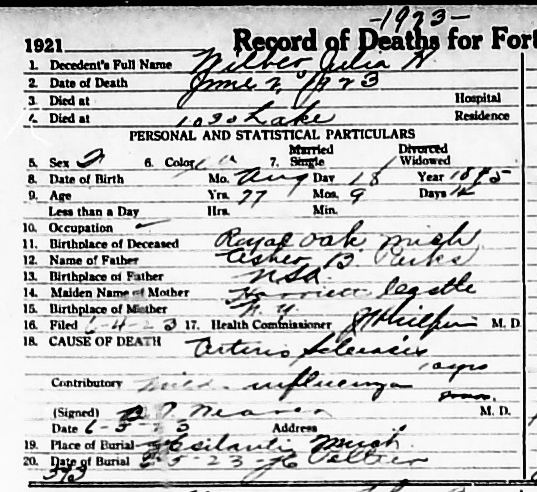 -1923-
1921 Record of Deaths for Fort
1. Decedent's Full Name Wilber, Julia H
2. Date of Death June 2, 1923
3. Died at Hospital
4. Died at 1030 Lake Residence
PERSONAL AND STATISTICAL PARTICULARS
5. Sex F 6. Color W 7. Married Single Divorced Widowed
8. Date of Birth Mo. Aug Day 18 Year 1845
9. Age Yrs. 77 Mos. 9 Days
Less than a Day Hrs. Min.
10. Occupation
11. Birthplace of Deceased Royal Oak Mich
12. Name of Father Asher B
13. Birthplace of Father
14. Maiden Name of Mother Harriett Castle
15. Birthplace of Mother N.Y.
16. Filed 6-4-23 17. Health Commissioner M. D.
18. CAUSE OF DEATH Arterio Sclerosis
10 yrs
Contributory Mild influenza
(Signed) M. D.
Date 6-3-23 Address
19. Place of Burial Ypsilanti Mich
20. Date of Burial 6-5-23
393